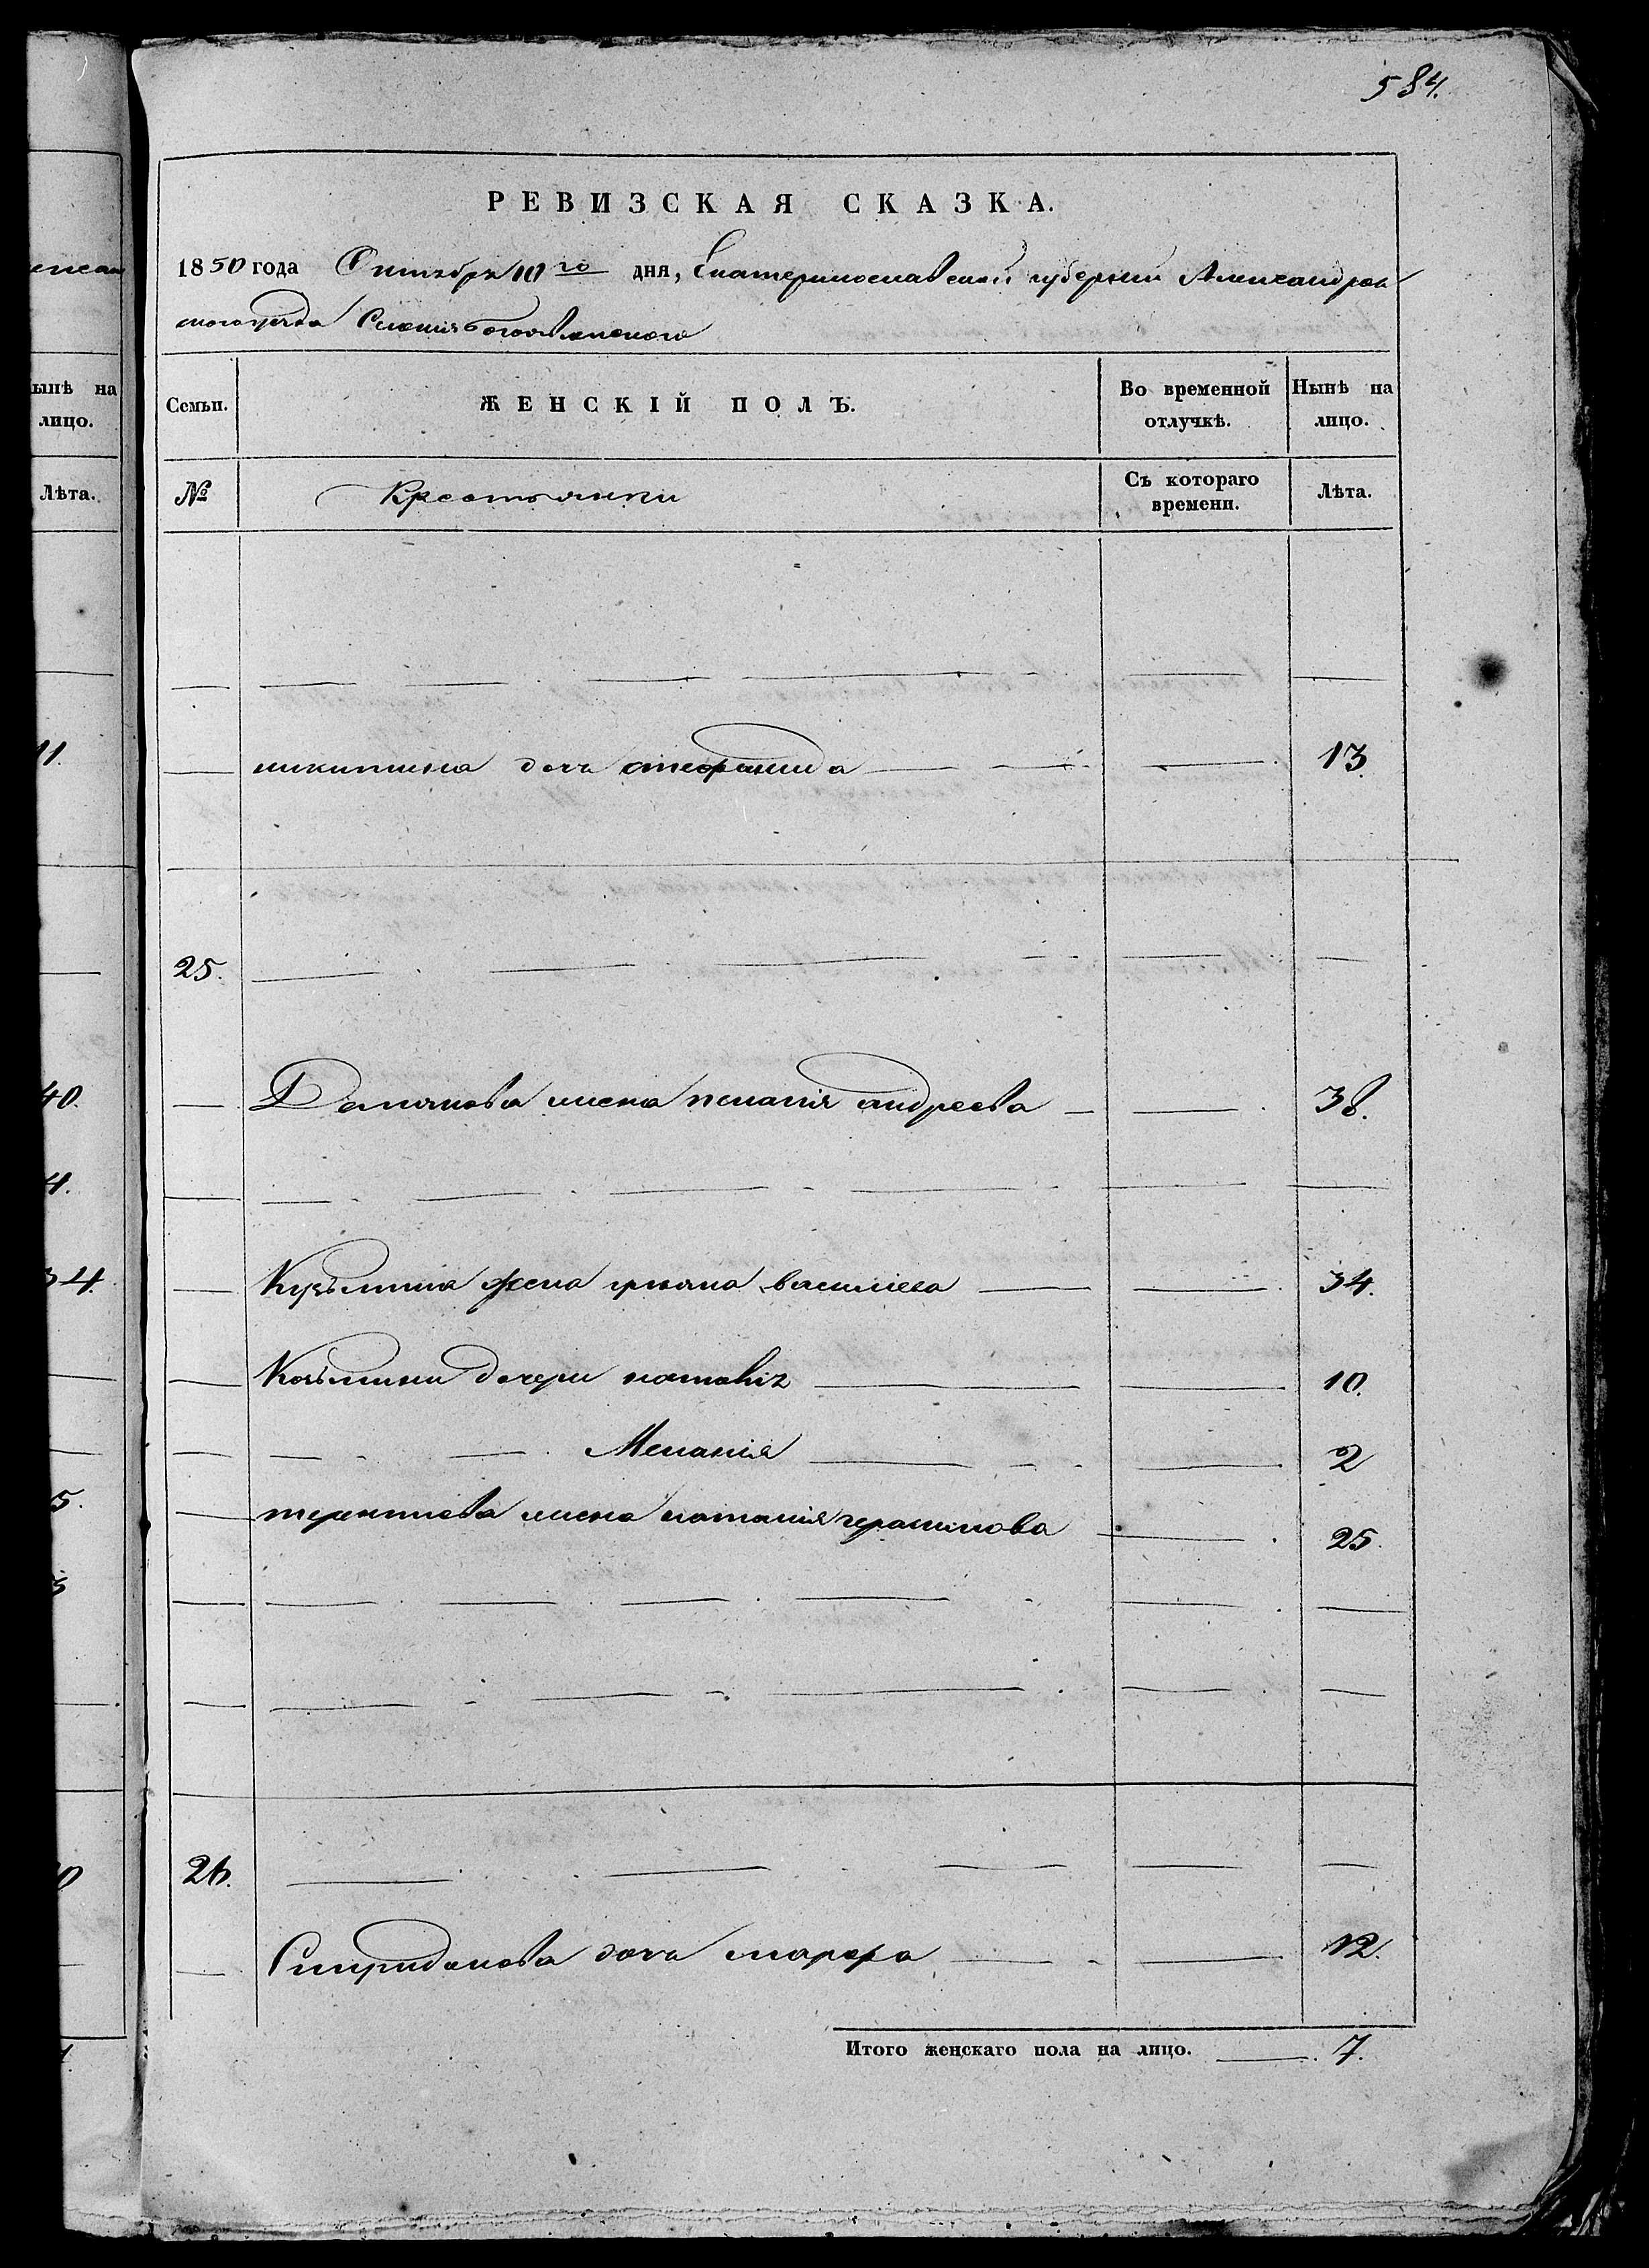 584.
РЕВИЗСКАЯ СКАЗКА.
1850 года Октября 10го дня, Екатеринославской губернии Александров
ского уезда Селения Богоявленского
Семьи. ЖЕНСКІЙ ПОЛЪ. Во временной отлучкѣ. Нынѣ на лицо.
№ Крестьянки Съ котораго времени. Лѣта.
никитина дочь стефанида 13.
25.
Демянова жена пелагия андреева 38.
Кузьмина жена ульяна василева 34.
Козьмины дочери наталия 10.
Мелания 2
терентиева жена наталия герасимова 25.
26.
Спиридонова дочь марфа 12.
Итого женскаго пола на лицо. 7.
ынѣ на
лицо.
Лѣта.
11.
40.
4.
34.
5.